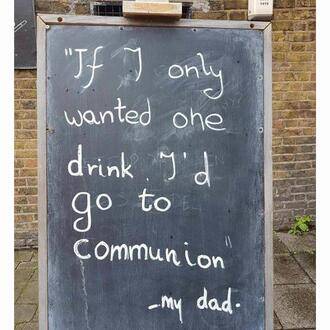 "If I only
wanted one
drink I'd
go to
communion"
-my dad.